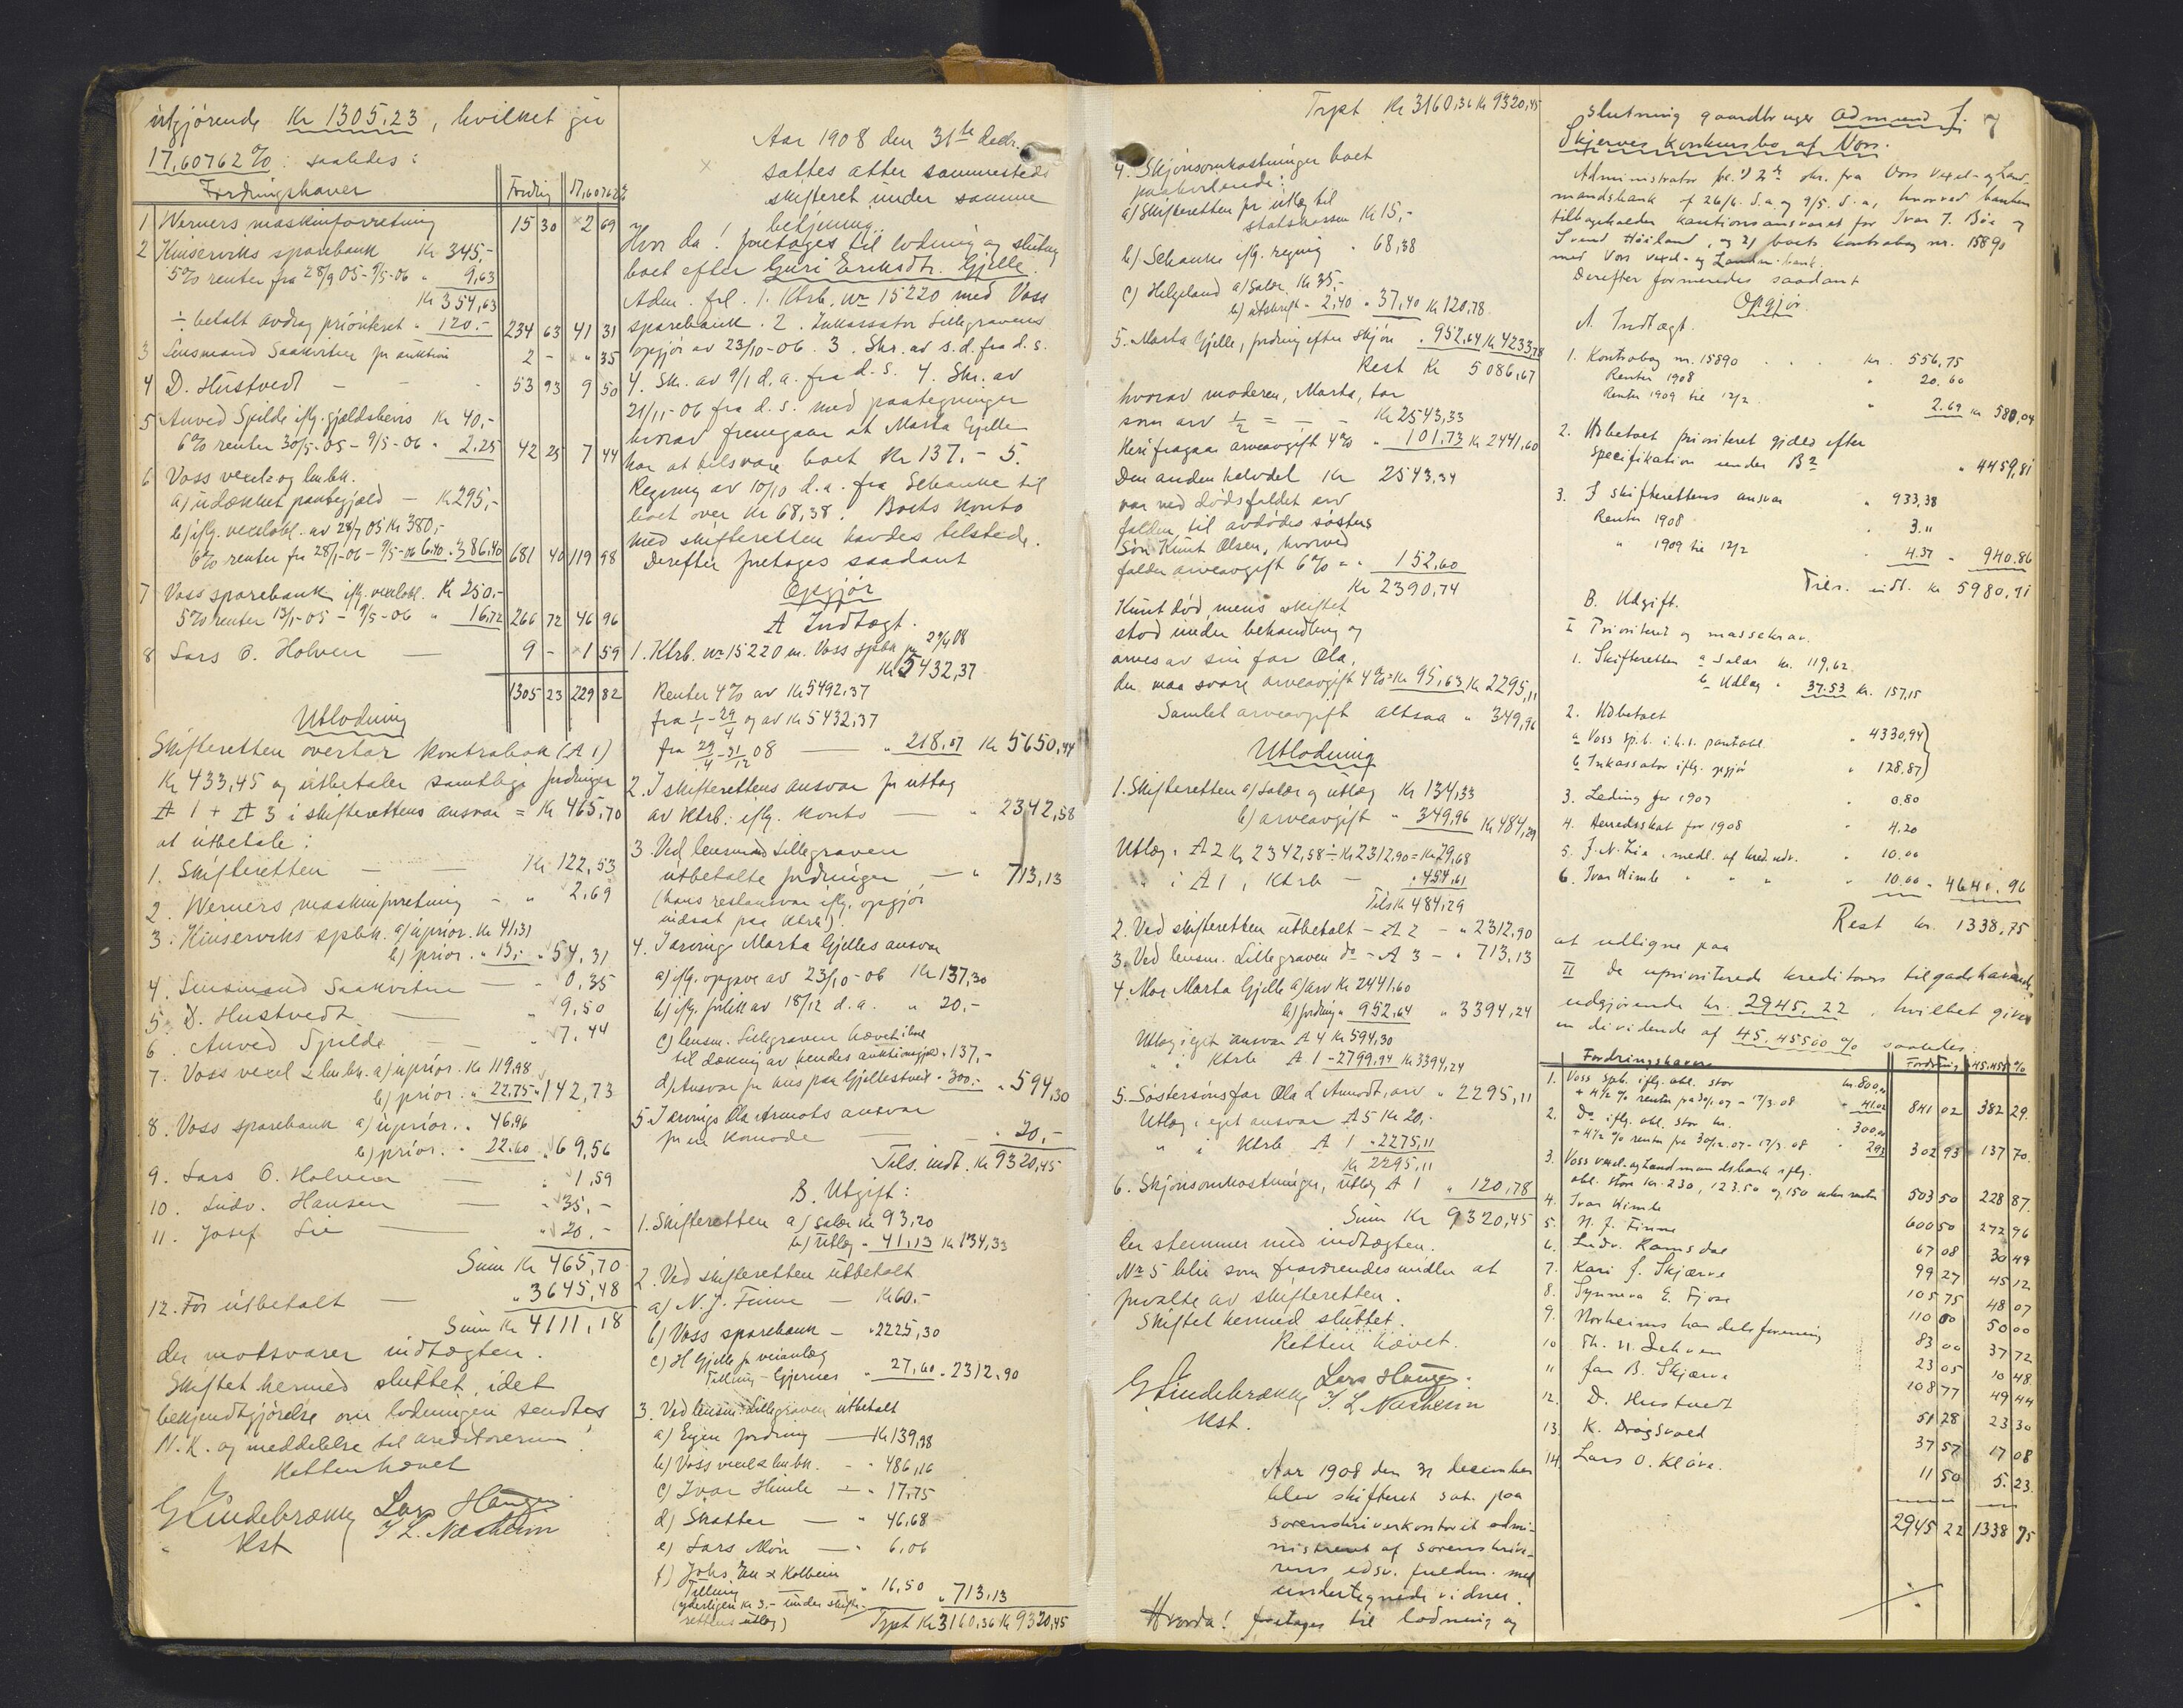 utgjørende Kr 1305,23, hvilket gir
17,60762 %: saaledes:
Fordringshaver Fordring 17,60762 %
1 Werners maskinforretning 15 30 2 69
2 Kinserviks sparebank Kr 345,-
5% renter fra 28/9 05 - 9/5-06 " 9,63
Kr 354,63
÷ betalt avdrag prioriteret " 120.- 234 63 41 31
3 Lensmand Saakvitne for auktion 2 - " 35
4 D. Hustvedt — - - 53 93 9 50
5 Anved Spilde iflg. gjeldsbevis Kr 40,-
6% renter 30/5-05 - 9/5-06 " 2.25 42 25 7 44
6 Voss vexel- og lmbk.
a) udækket pantegjæld — Kr 295,-
b) iflg. vexelobl. av 28/7 05 Kr 380,-
6% renter fra 28/1-06 - 9/5-06 6.40 " 386.40 681 40 119 98
7 Voss sparebank iflg. vexelobl. Kr 250.-
5% renter 13/1-05 - 9/5-06 " 16,72 266 72 46 96
8 Lars O. Holven — 9 - 1 59
1305 23 229 82
Utlodning
Skifteretten overtar kontrabok (A 1)
Kr 433,45 og utbetaler samtlige fordringer
A 1 + A 3 i skifterettens ansvar = Kr 465,70
at utbetale:
1. Skifteretten — — Kr 122,53
2. Werners maskinforretning - " 2,69
3. Kinserviks spbk. a) uprior. Kr 41,31
b) prior. " 13,- " 54,31
4. Lensmand Saakvitne — - 0,35
5. D. Hustvedt — " 9,50
6. Anved Spilde — - " 7,44
7. Voss vexel & lmbk. a) uprior. Kr 119,98
b) prior. " 22,75 " 142,73
8. Voss sparebank a) uprior. " 46,96
b) prior. " 22.60 " 69,56
9. Lars O. Holven — " 1,59
10. Ludv. Hansen — - 35,-
11. Josef Lie — " 20.-
Sum Kr 465,70
12. Før utbetalt — " 3645,48
Sum Kr 4111,18
der motsvarer indtægten.
Skiftet hermed sluttet, idet
bekjendtgjørelse om lodningen sendtes
N.K. og meddelelse til kreditorerne.
Retten hævet
G Lindebrække Lars Haugen
Kst I. L. Næsheim
Aar 1908 den 31te decbr.
sattes atter sammesteds
skifteret under samme
betjening.
Hvor da! foretages til lodning og slutning
boet efter Guri Eriksdtr. Gjelle.
Adm. frl. 1. Ktrb. No 15220 med Voss
sparebank. 2. Inkassator Lillegravens
opgjør av 23/10-06. 3. Skr. av s.d. fra d.s.
4. Skr. av 9/1 d.a. fra d.s. 4. Skr. av
21/11-06 fra d.s. med paategninger
hvorav fremgaar at Marta Gjelle
har at tilsvare boet Kr 137.- 5.
Regning av 10/10 d.a. fra Schanke til
boet over Kr 68,38. Boets konto
med skifteretten havdes tilstede.
Derefter foretages saadant
Opgjør
A Indtægt.
1. Ktrb. No 15220 m. Voss spbk pr 29/4 08
Kr 5432,37
Renter 4% av Kr 5492,37
fra 1/1 - 29/4 og av Kr 5432,37
fra 29/4 - 31/12 08 — " 218,07 Kr 5650,44
2. I skifterettens ansvar for uttag
av ktrb. iflg. konto — " 2342,58
3. Ved lensmand Lillegraven
utbetalte fordringer — " 713,13
(hans restansvar iflg. opgjør
indsat paa ktrb.)
4. I arving Marta Gjelles ansvar
a) iflg. opgave av 23/10-06 Kr 137,30
b) iflg. forlik av 18/12 d.a. " 20.-
c) lensm. Lillegraven hævet ibnt
til dækning av hendes auktionsgjæld " 137,-
d) Ansvar for hus paa Gjellestveit " 300.- " 594,30
5. I arvings Ola Armots ansvar
for en komode — - 20.-
Tils. indt. Kr 9320,45
B. Utgift:
1. Skifteretten a) salær Kr 93,20
b) utlæg " 41,13 Kr 134,33
2. Ved skifteretten utbetalt
a) N. J. Finne — Kr 60.-
b) Voss sparebank — " 2225,30
c) H Gjelle for veianlæg
Tillung - Gjernes " 27,60 " 2312,90
3. Ved lensm. Lillegraven utbetalt
a) Egen fordring — Kr 139,98
b) Voss vexel & lmbk. - " 486,16
c) Ivar Himle — " 17,75
d) Skatter — " 46,68
e) Lars Møn — " 6,06
f) Johs. Eu & Kolbein
Tillung — " 16,50 " 713,13
(yderligere Kr 3.- under skifte-
rettens utlæg) Trpt Kr 3160,36 Kr 9320,45
Trpt Kr 3160,36 Kr 9320,45
4. Skjønsomkostninger boet
paahvilende:
a) Skifteretten for utlæg til
statskassen Kr 15,-
b) Schanke iflg. regning " 68,38
c) Helgeland a) Salær Kr 35,-
b) utskrift " 2,40 " 37,40 Kr 120,78
5. Marta Gjelle, fordring efter skjøn " 952,64 Kr 4233,78
Rest Kr 5086,67
hvorav moderen, Marta, tar
som arv 1/2 = — - Kr 2543,33
Herifragaar arveavgift 4% " 101,73 Kr 2441,60
Den anden halvdel Kr 2543,34
var ved dødsfaldet arv
falden til avdødes søsters
søn Knut Olsen, hvorved
falder arveavgift 6% = " 152,60
Kr 2390,74
Knut død mens skiftet
stod under behandling og
arves av sin far Ola,
der maa svare arveavgift 4% = Kr 95,63 Kr 2295,11
Samlet arveavgift altsaa " 349,96
Utlodning
1. Skifteretten a) salær og utlæg Kr 134,33
b) arveavgift " 349,96 Kr 484,29
Utlæg i A 2 Kr 2342,58 ÷ Kr 2312,90 = Kr 29,68
" i A 1, Ktrb — " 454,61
Tils Kr 484,29
2. Ved skifteretten utbetalt - A 2 - " 2312,90
3. Ved lensm. Lillegraven do - A 3 - " 713,13
4. Mor Marta Gjelle a) arv Kr 2441,60
b) fordring " 952,64 " 3394,24
Utlæg i eget ansvar A 4 Kr 594,30
" i ktrb A 1 - 2799,94 Kr 3394,24
5. Søstersønsfar Ola L Armodt, arv " 2295,11
Utlæg i eget ansvar A 5 Kr 20,-
" i Ktrb A 1 " 2275,11
Kr 2295,11
6. Skjønsomkostninger, utlæg A 1 " 120,78
Sum Kr 9320,45
der stemmer med indtægten.
No 5 blir som fraværendes midler at
forvalte av skifteretten.
Skiftet hermed sluttet.
Retten hævet.
G Lindebrække Lars Haugen.
Kst. I. L. Næsheim
Aar 1908 den 31 december
blev skifteret sat paa
sorenskriverkontoret admi-
nistreret af sorenskrive-
rens edsv. fuldm. med
undertegnede vidner.
Hvorda! foretages til lodning og
7
slutning gaardbruger Admund J.
Skjerves konkursbo af Voss.
Administrator frl. 1) 2de skr. fra Voss vexel- og Land-
mandsbank af 26/6 d.a. og 9/5. d.a., hvorved banken
tilbagekalder kautionsansvaret for Ivar T. Bøe og
Svend Høiland, og 2) boets kontrabog nr. 15890
med Voss vexel- og Landm.bank.
Derefter formeredes saadant
Opgjør.
A. Indtægt.
1. Kontrabog nr. 15890 . . . kr. 556,75
Renter 1908 " 20.60
Renter 1909 til 12/2 " 2.69 kr. 580,04
2. Udbetalt prioriteret gjæld efter
specifikation under B 2 " 4459,81
3. I skifterettens ansvar " 933,38
Renter 1908 " 3."
" 1909 til 12/2 " 4.37 " 940.86
Tils. indt. kr 5980,71
B. Udgift.
I Prioriteret og massekrav.
1. Skifteretten a salær kr. 119,62
b Udlæg " 37.53 kr. 157,15
2. Udbetalt
a Voss sp.b. i.h.t. pantobl. " 4330,94
b Inkassator iflg. opgjør " 128.87
3. Leding for 1907 " 0.80
4. Herredsskat for 1908 " 4.20
5. J. N. Lie, medl. af kred.udv. " 10.00
6. Ivar Himle " " " " 10.00 " 4641.96
Rest kr. 1338,75
at udligne paa
II de uprioriterede kreditorers tilgodehavende
udgjørende kr. 2945.22, hvilket giver
en dividende af 45,45500 % saaledes:
Fordringshaver Fordring 45,455 %
1. Voss spb. iflg. obl. stor kr. 800,00
+ 4 1/2 % renter fra 30/1.07 - 17/3.08 " 41.02 841 02 382 29.
2. Do iflg. obl. stor kr. " 300,00
+ 4 1/2 % renter fra 30/12.07 - 17/3.08 " 2.93 302 93 137 70.
3. Voss vexel- og Landmandsbank iflg.
obl. store kr. 230, 123.50 og 150 uden renter 503 50 228 87.
4. Ivar Himle 600 50 272 96
5. N. J. Finne 67 08 30 49
6. Ludv. Ramsdal 99 27 45 12
7. Kari J. Skjærve 105 75 48 07
8. Synneva E. Fjose 110 00 50 00
9. Norheims handelsforening 83 00 37 72
10 Th. N. Lekven 23 05 10 48
11 Jan B. Skjærve 108 77 49 44
12. D. Hustvedt 51 28 23 30
13. K. Dragsvold 37 57 17 08
14. Lars O. Kløve. 11 50 5.23.
2945 22 1338 75